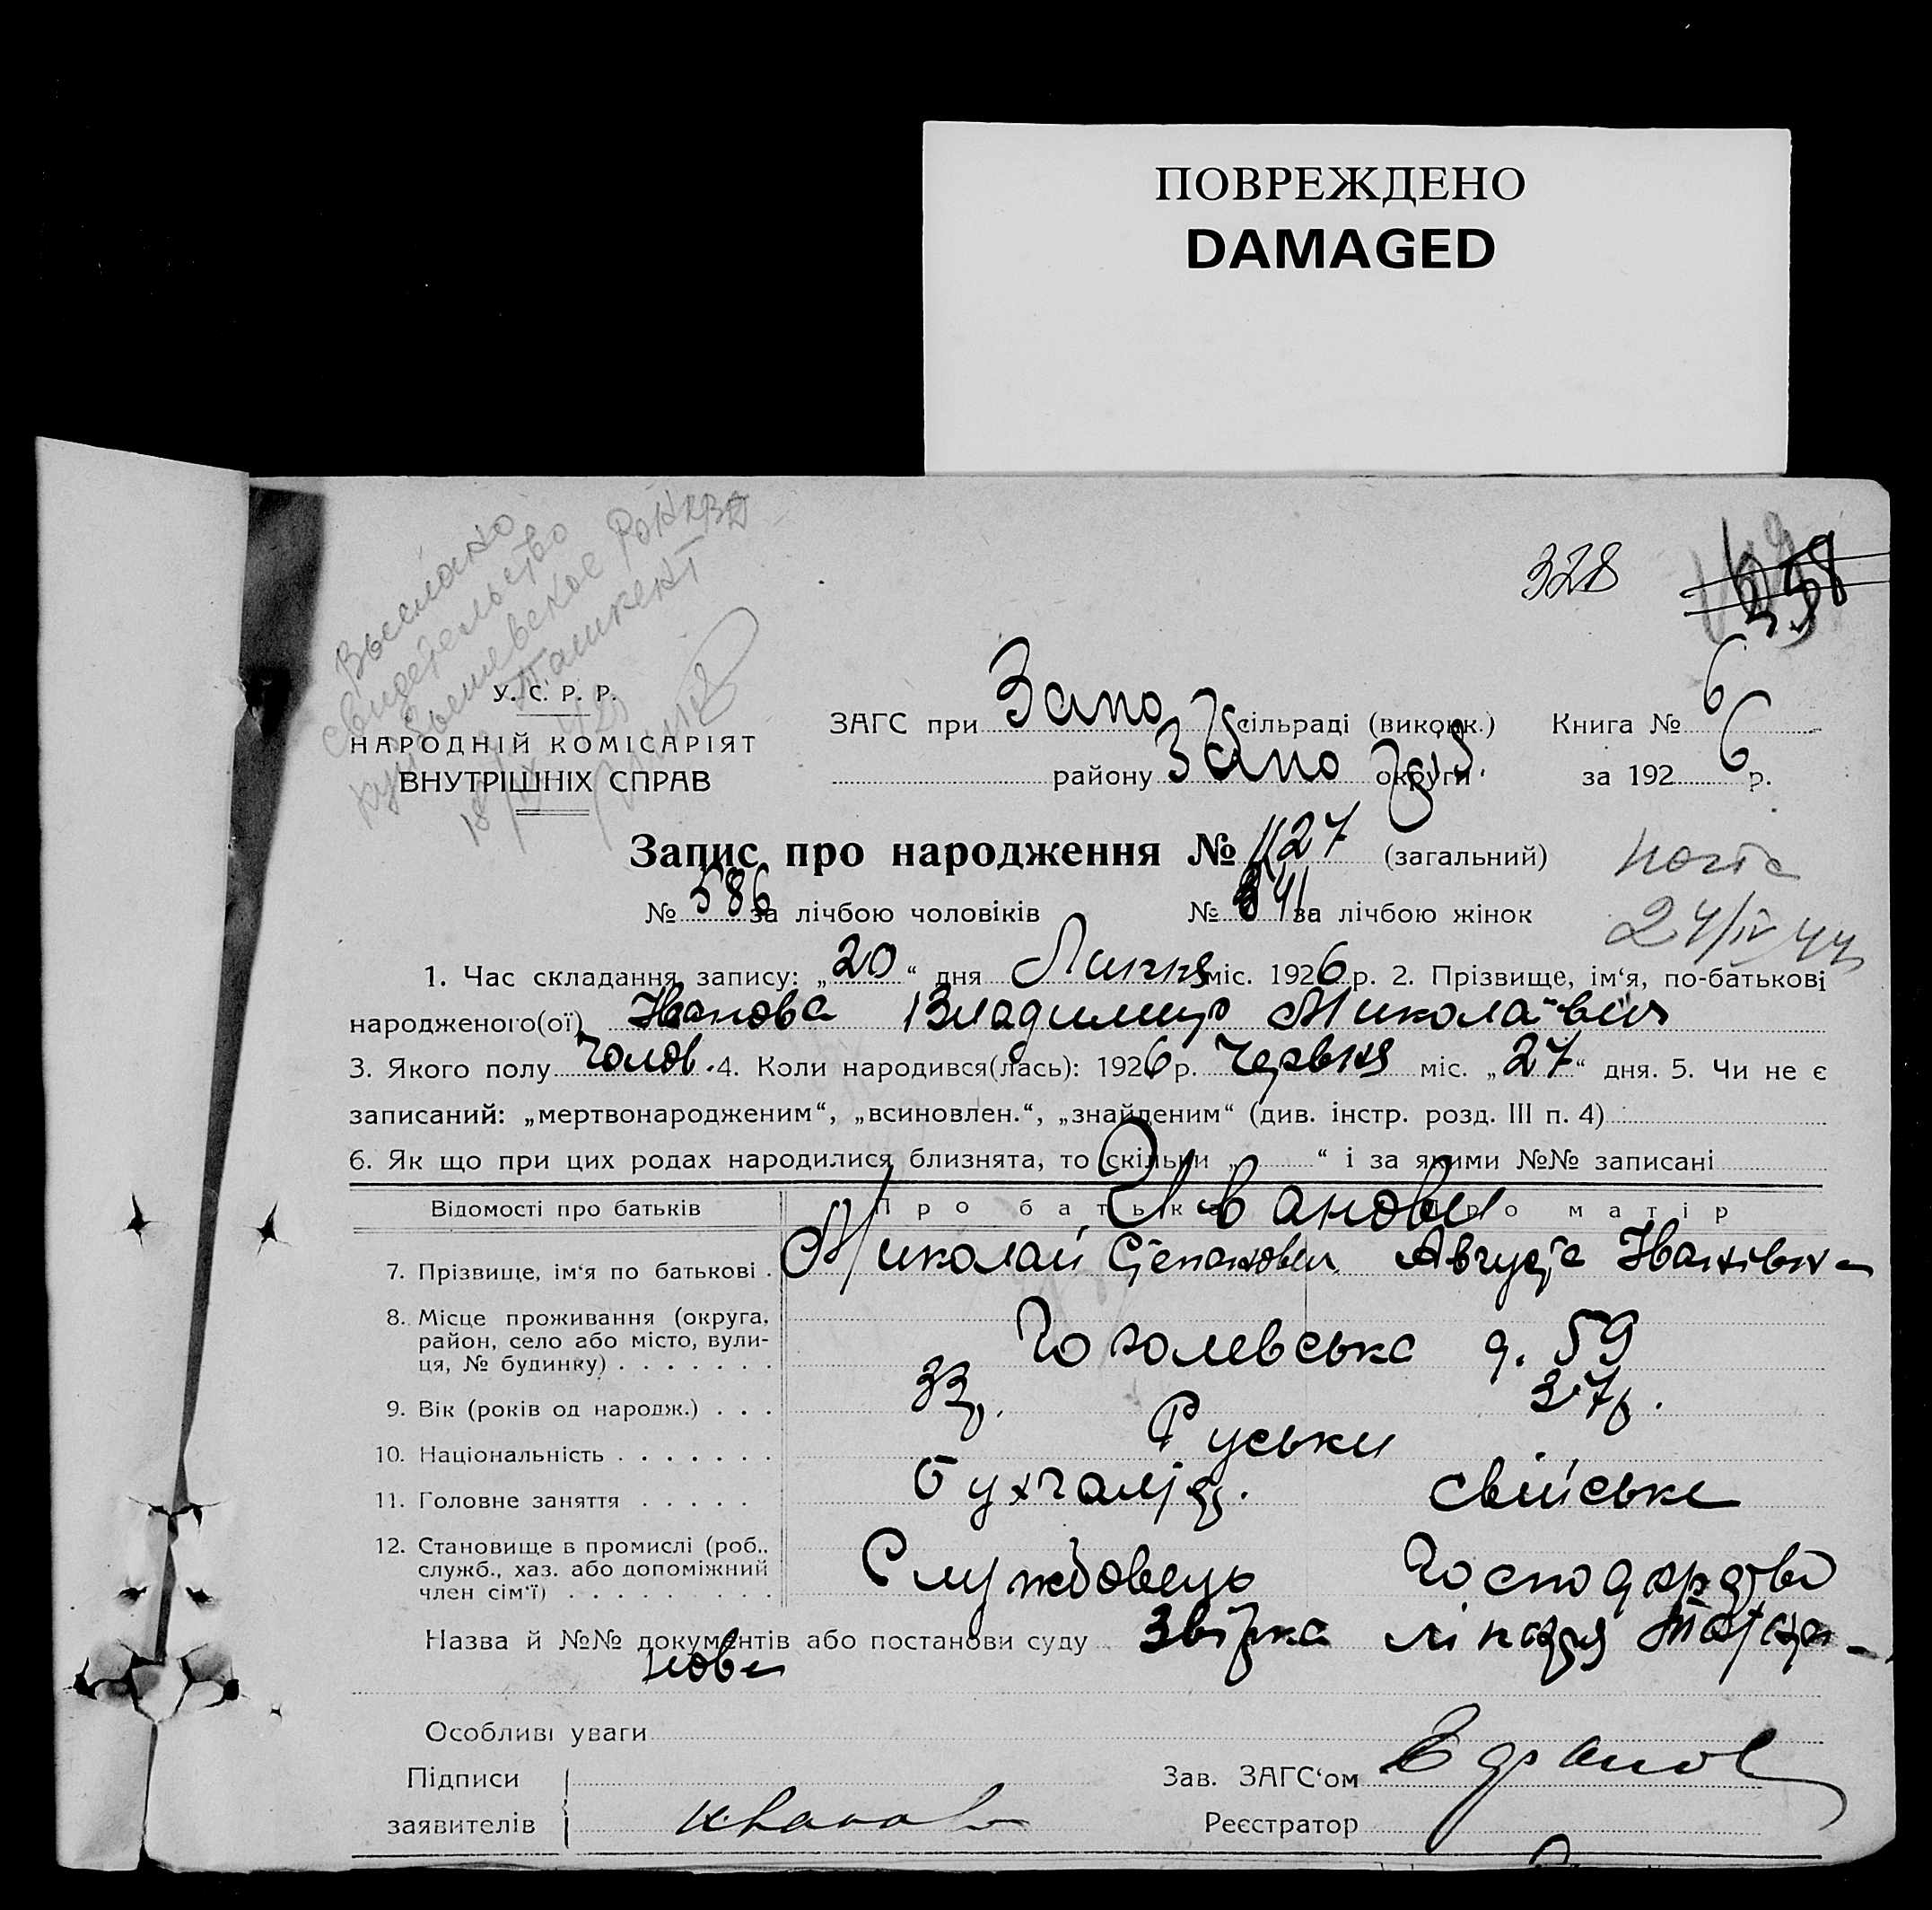 ПОВРЕЖДЕНО
DAMAGED
Выслано
свидетельство
РОНКВД
Ташкент
328
У. С. Р. Р.
НАРОДНІЙ КОМІСАРІЯТ
ВНУТРІШНІХ СПРАВ
ЗАГС при Запо сільраді (виконк.) Книга № 6
району Запо округи за 192 6 р.
Запис про народження № 1127 (загальний)
№ 586 за лічбою чоловіків № 541 за лічбою жінок
почта
24/IV 44
1. Час складання запису: „20“ дня Липня міс. 1926 р. 2. Прізвище, ім‘я, по-батькові
народженого(ої) Іванова Владимир Миколаівич
3. Якого полу Чолов. 4. Коли народився(лась): 1926 р. Червня міс. „27“ дня. 5. Чи не є
записаний: „мертвонародженим“, „всиновлен.“, „знайденим“ (див. інстр. розд. III п. 4)
6. Як що при цих родах народилися близнята, то скільки „ “ і за якими №№ записані
Відомості про батьків Про батька Про матір
Ивановы
7. Прізвище, ім‘я по батькові . Миколай Степанович Августа Іванівна
8. Місце проживання (округа,
район, село або місто, вули-
ця, № будинку) . . . . . . . Гоголевська д. 59
9. Вік (років од народж.) . . . 33 р. 37 р.
10. Національність . . . . . . . Руськи
11. Головне заняття . . . . . Бухгалтер. свійське
12. Становище в промислі (роб.,
служб., хаз. або допоміжний
член сім‘ї) . . . . . . . . . Службовець господарство
Назва й №№ документів або постанови суду Звірка лікаря
Особливі уваги
Підписи
заявителів
Зав. ЗАГС‘ом
Реєстратор